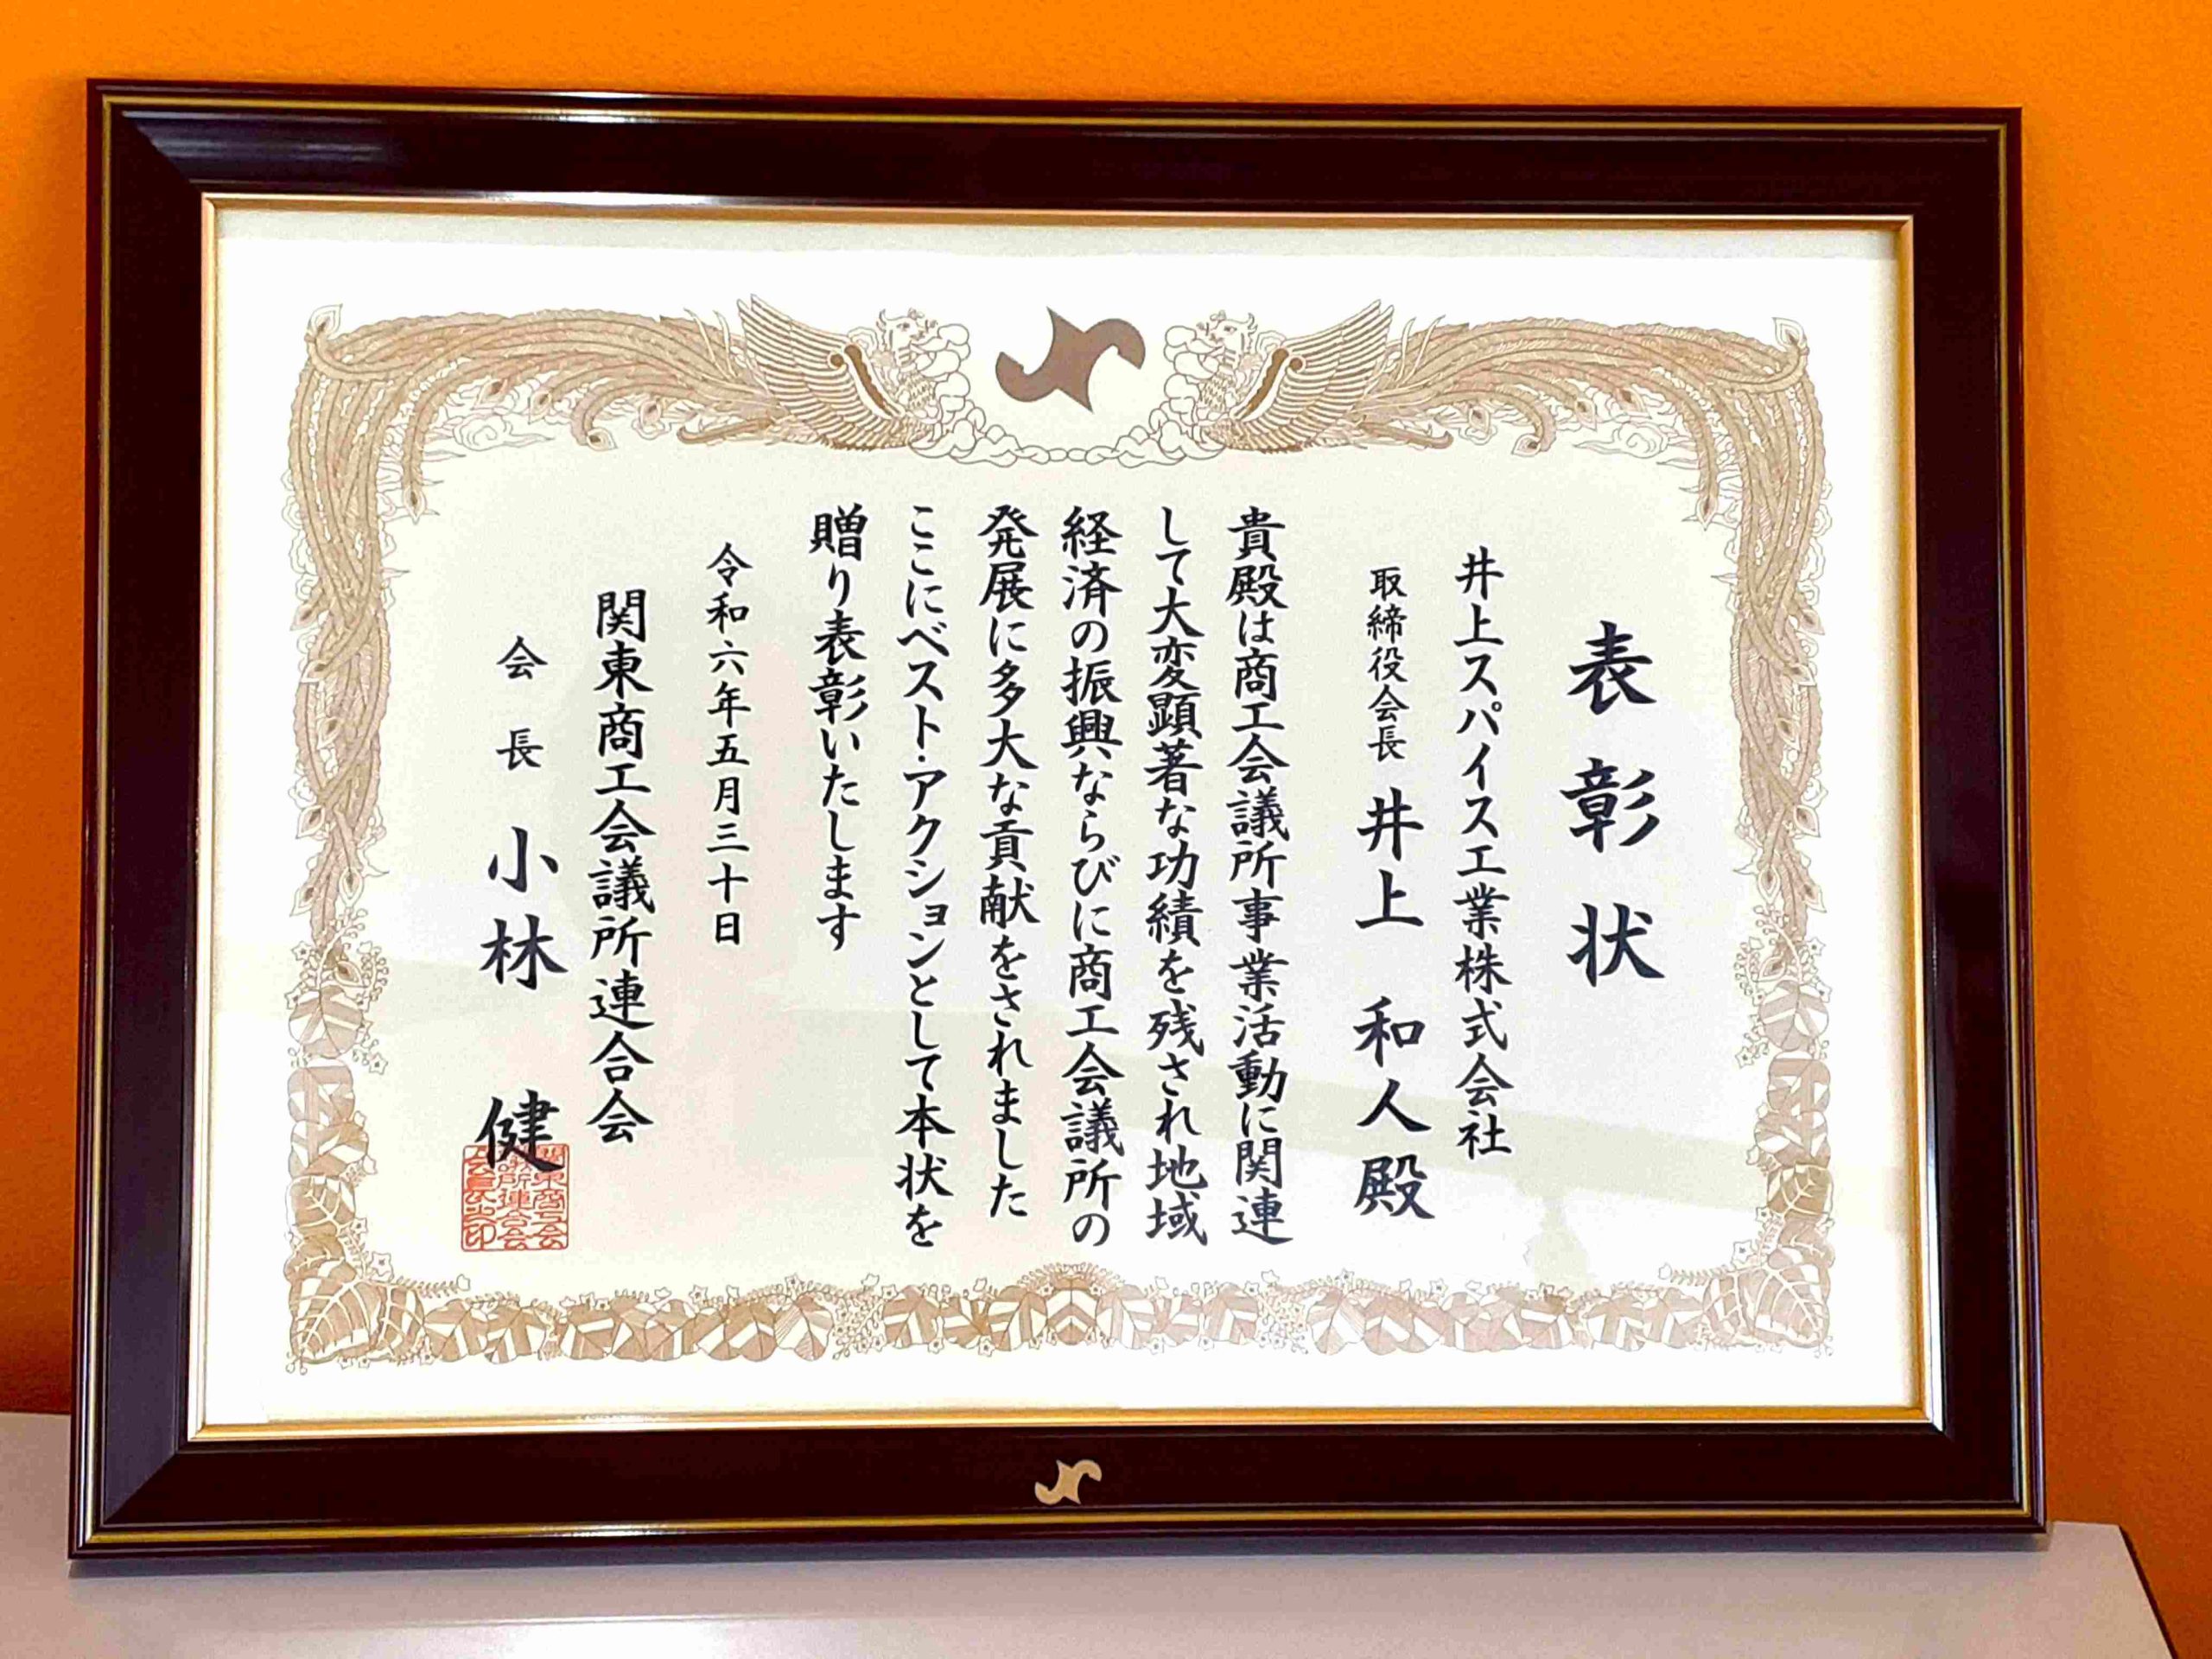 表彰状
井上スパイス工業株式会社
取締役会長 井上 和人 殿
貴殿は商工会議所事業活動に関連
して大変顕著な功績を残され地域
経済の振興ならびに商工会議所の
発展に多大な貢献をされました
ここにベスト・アクションとして本状を
贈り表彰いたします
令和六年五月三十日
関東商工会議所連合会
会長 小林 健
関東商工会
議所連合会
会長之印